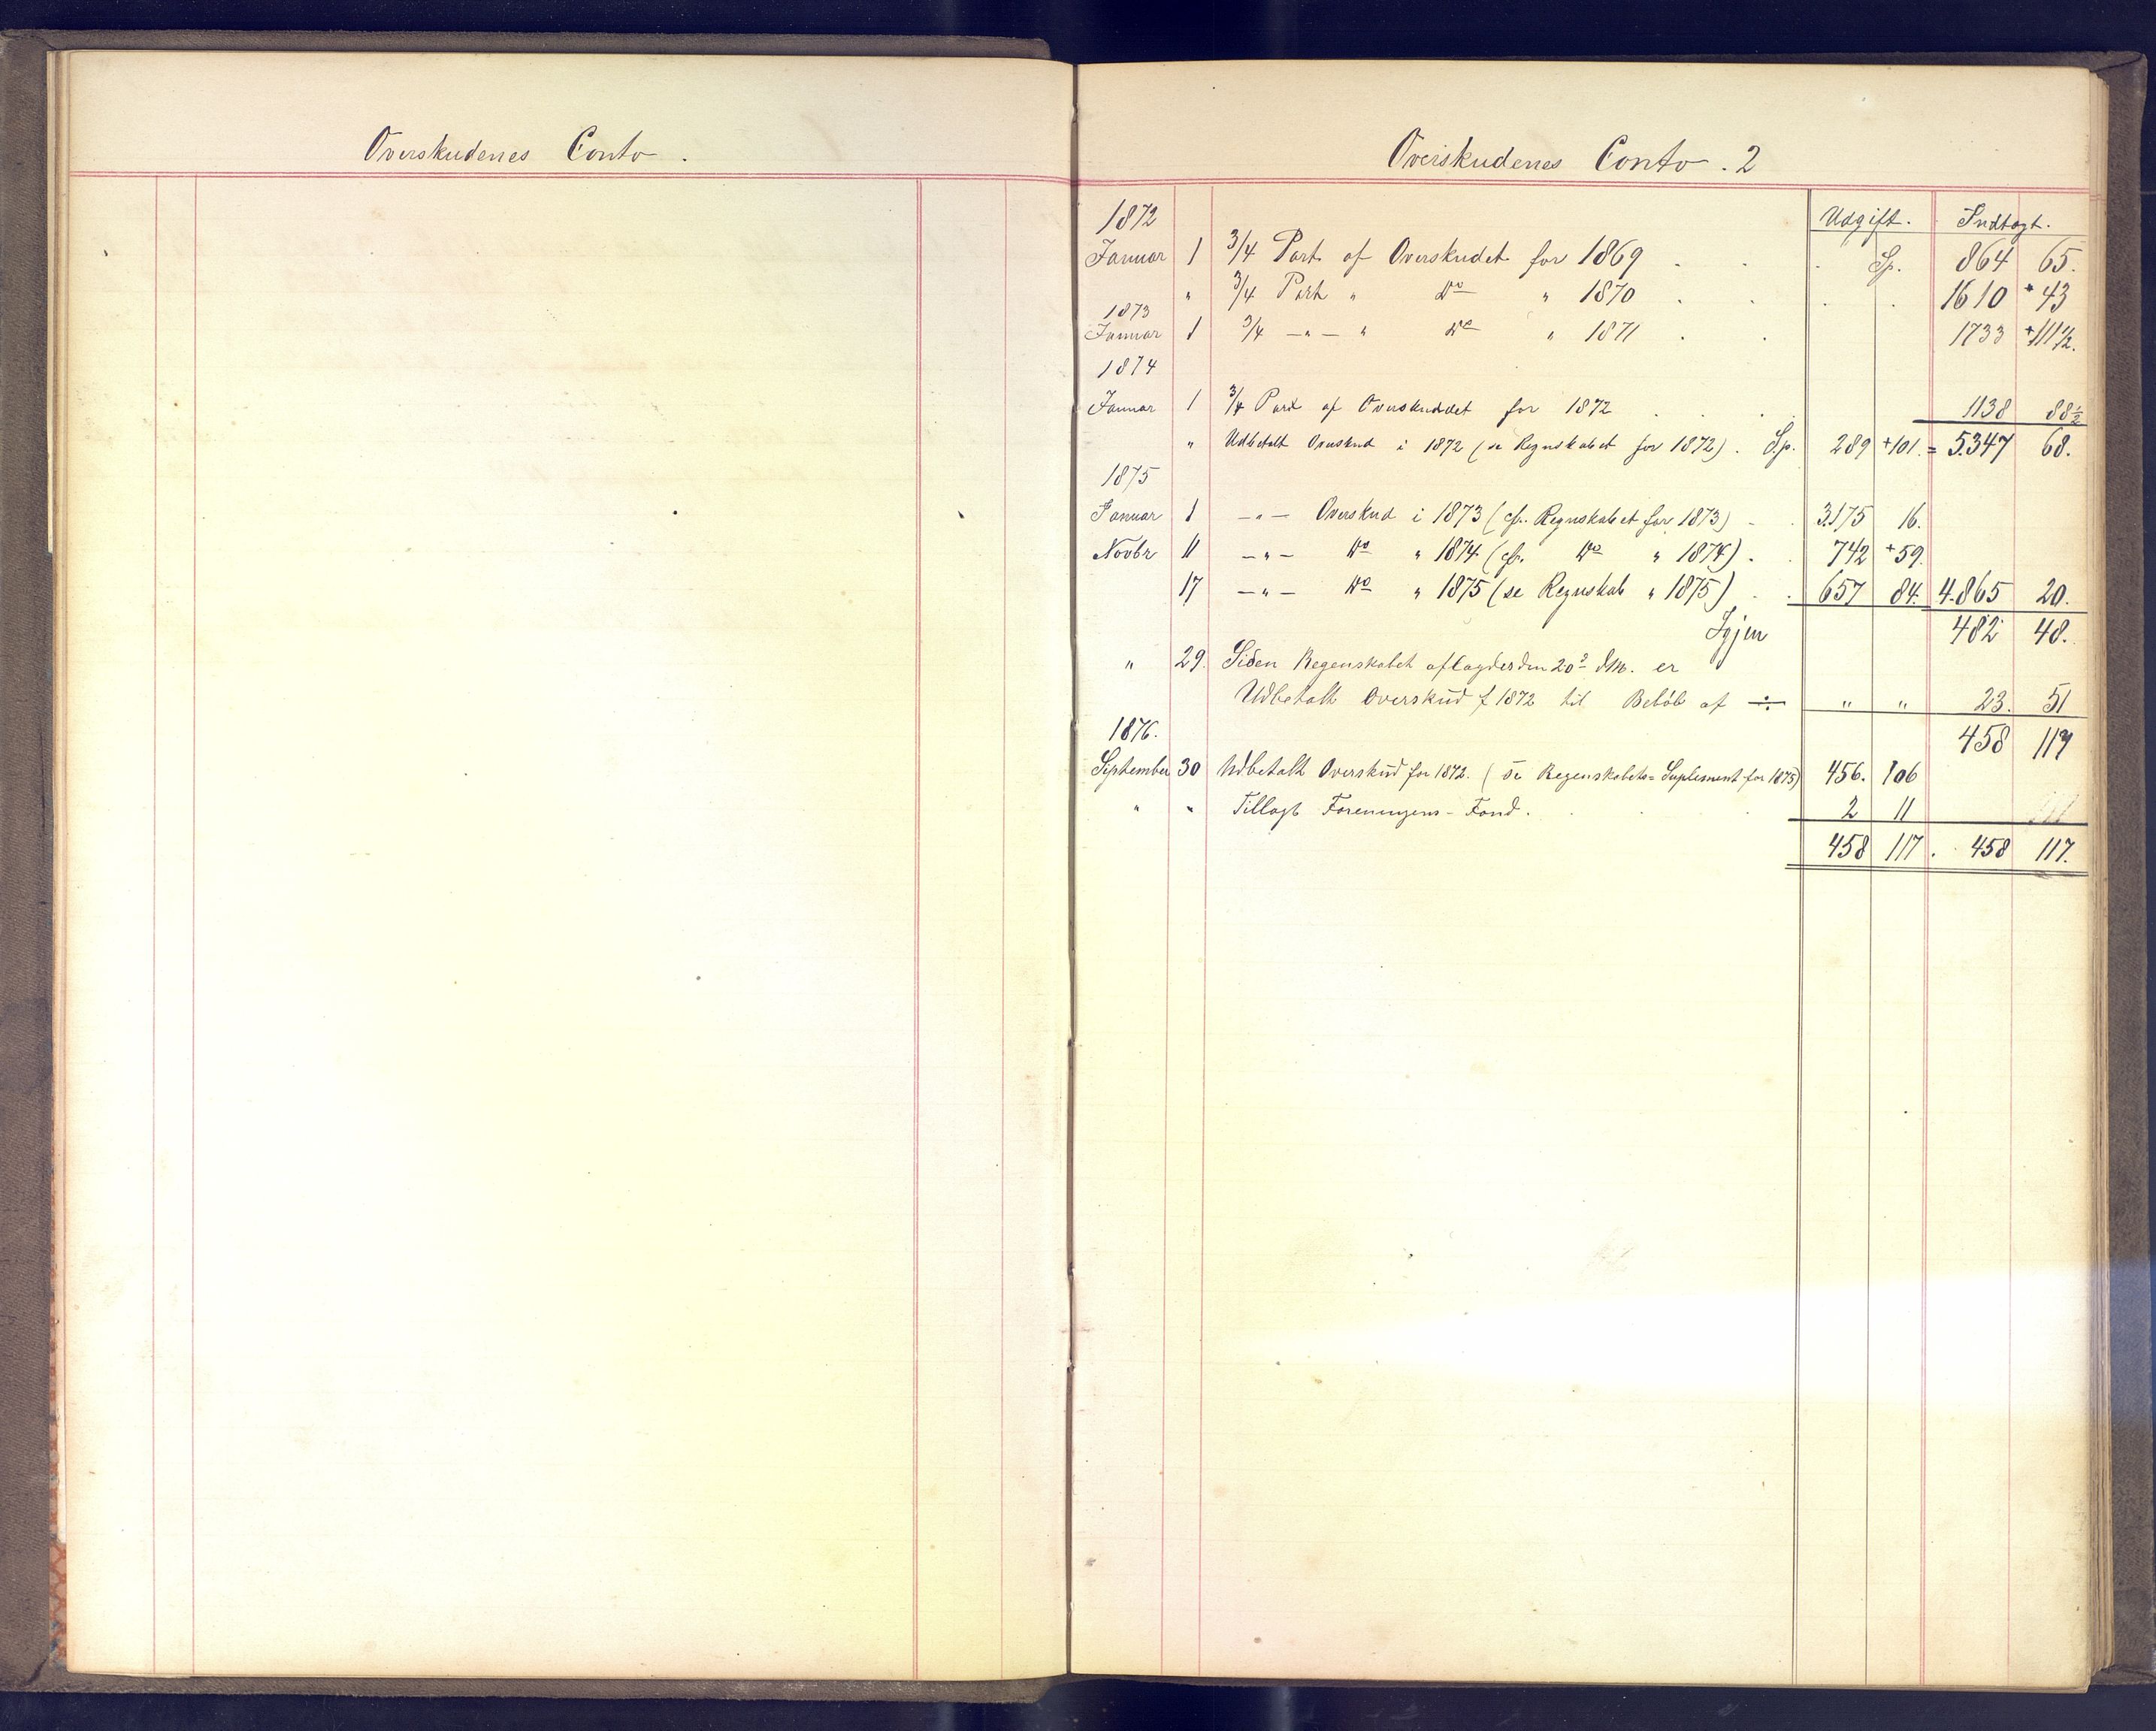 Overskudenes Conto.
Overskudenes Conto. 2
1872 Udgift. Indtægt.
Januar 1 3/4 Part af Overskudet for 1869 . . . Sp. 864 65.
" 3/4 Part " Do " 1870 . . . . 1610 + 43
1873
Januar 1 3/4 —"— " Do " 1871 . . 1733 +111 1/2.
1874
Januar 1 3/4 Part af Overskuddet for 1872 . . . . 1138 88 1/2
" Udbetalt Overskud i 1872 (se Regnskabet for 1872) . Sp. 289 +101. = 5.347 68.
1875
Januar 1 —"— Overskud i 1873 (cfr. Regnskabet for 1873) . . 3.175 16.
Novbr 11 —"— Do " 1874 (cfr. Do " 1874) . 742 +59.
17 —"— Do " 1875 (se Regnskab " 1875) . . 657 84. 4.865 20.
Igjen 482 48.
" 29. Siden Regenskabet aflagdes den 20de d.M. er
Udbetalt Overskud f 1872 til Beløb af ÷ " " 23. 51
1876. 458 117
September 30 Udbetalt Overskud for 1872. (se Regenskabets=Suplement for 1875) 456. 106
" " Tillagt Foreningens-Fond. . . . 2 11
458 117. 458 117.